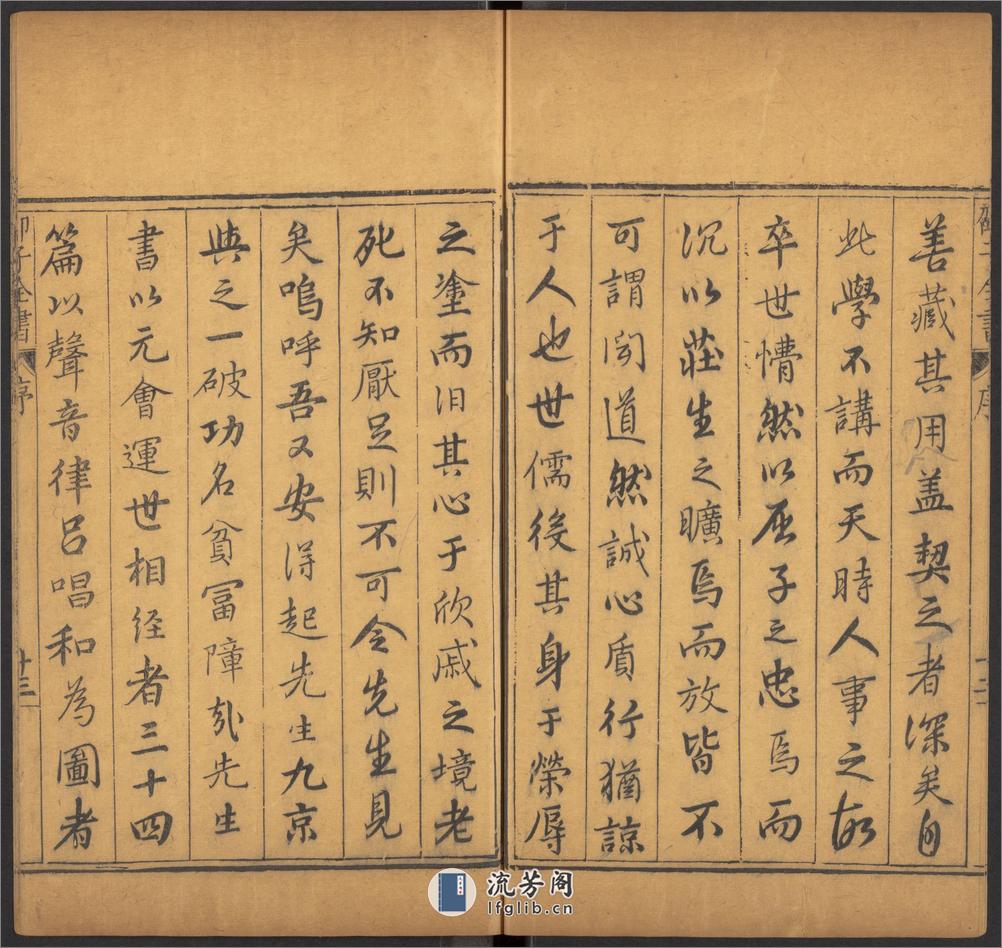 善藏其用盖契之者深矣自
此學不講而天時人事之故
卒世懵然以屈子之忠焉而
沉以莊生之曠焉而放皆不
可謂聞道然誠心質行猶諒
于人也世儒後其身于榮辱
之塗而汩其心于欣戚之境老
死不知厭足則不可令先生見
矣嗚呼吾又安得起先生九京
與之一破功名貧冨障㢤先生
書以元會運世相経者三十四
篇以聲音律呂唱和為圖者
邵子全書 序 十三
流芳阁
lfglib.cn